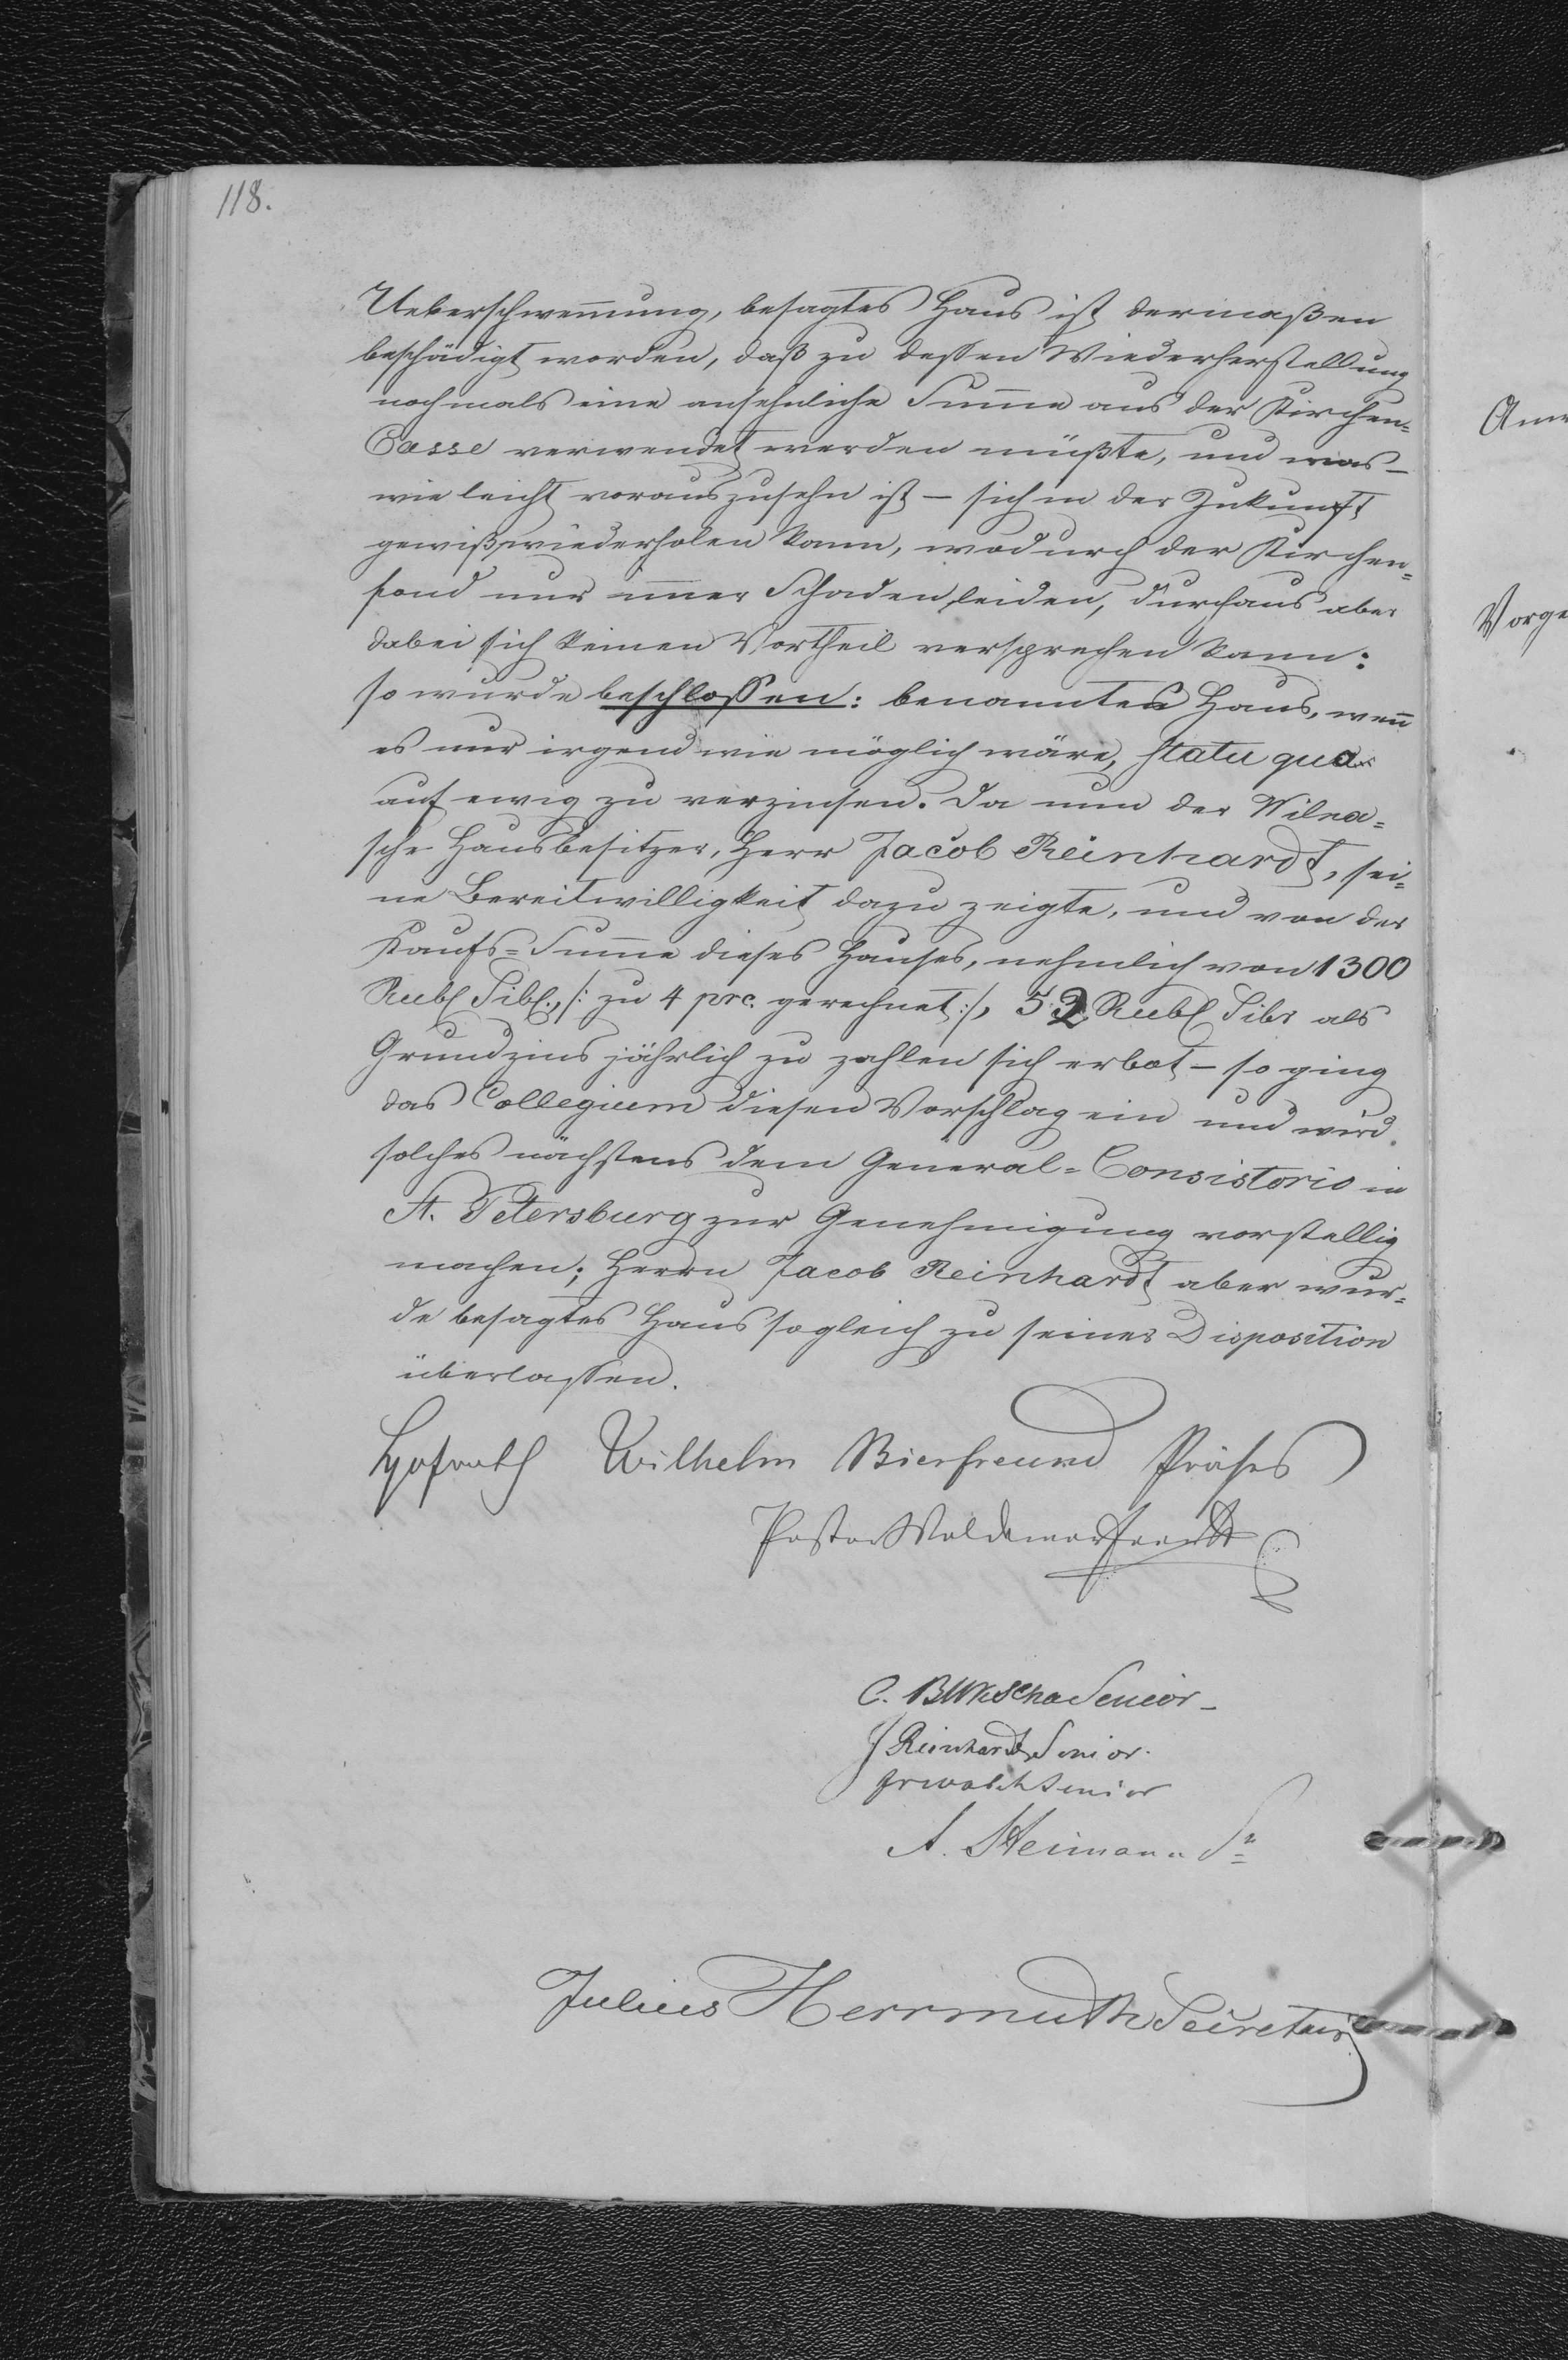 118.
Ueberschwemmung, besagtes Haus ist dermaßen
beschädigt worden, daß zu dessen Wiederherstellung
nochmals eine ansehnliche Summe aus der Kirchen=
Casse verwendet werden müßte, und was –
wie leicht vorauszusehn ist – sich in der Zukunft
gewiß wiederholen kann, wodurch der Kirchen=
fond nur immer Schaden leiden, durchaus aber
dabei sich keinen Vortheil versprechen kann:
so wurde beschlossen: benanntes Haus, wenn
es nur irgend wie möglich wäre, statu quo
auf ewig zu verzinsen. Da nun der Wilna=
sche Hausbesitzer, Herr Jacob Reinhardt, sei=
ne Bereitwilligkeit dazu zeigte, und von der
Kaufs=Summe dieses Hauses, nehmlich von 1300
Rubl Silb., /: zu 4 prc. gerechnet :/, 52 Rubl Silb als
Grundzins jährlich zu zahlen sich erbot – so ging
das Collegium diesen Vorschlag ein und wird
solches nächstens dem General=Consistorio in
St. Petersburg zur Genehmigung vorstellig
machen; Herrn Jacob Reinhardt aber wur=
de besagtes Haus sogleich zu seiner Disposition
überlassen.
Hofrath Wilhelm Bierfreund Präses
Pastor Woldemar
C. Senior
J Reinhardt Senior.
Senior
A. Heimann Sr
Julius Herrmuth Secretair
Vorge